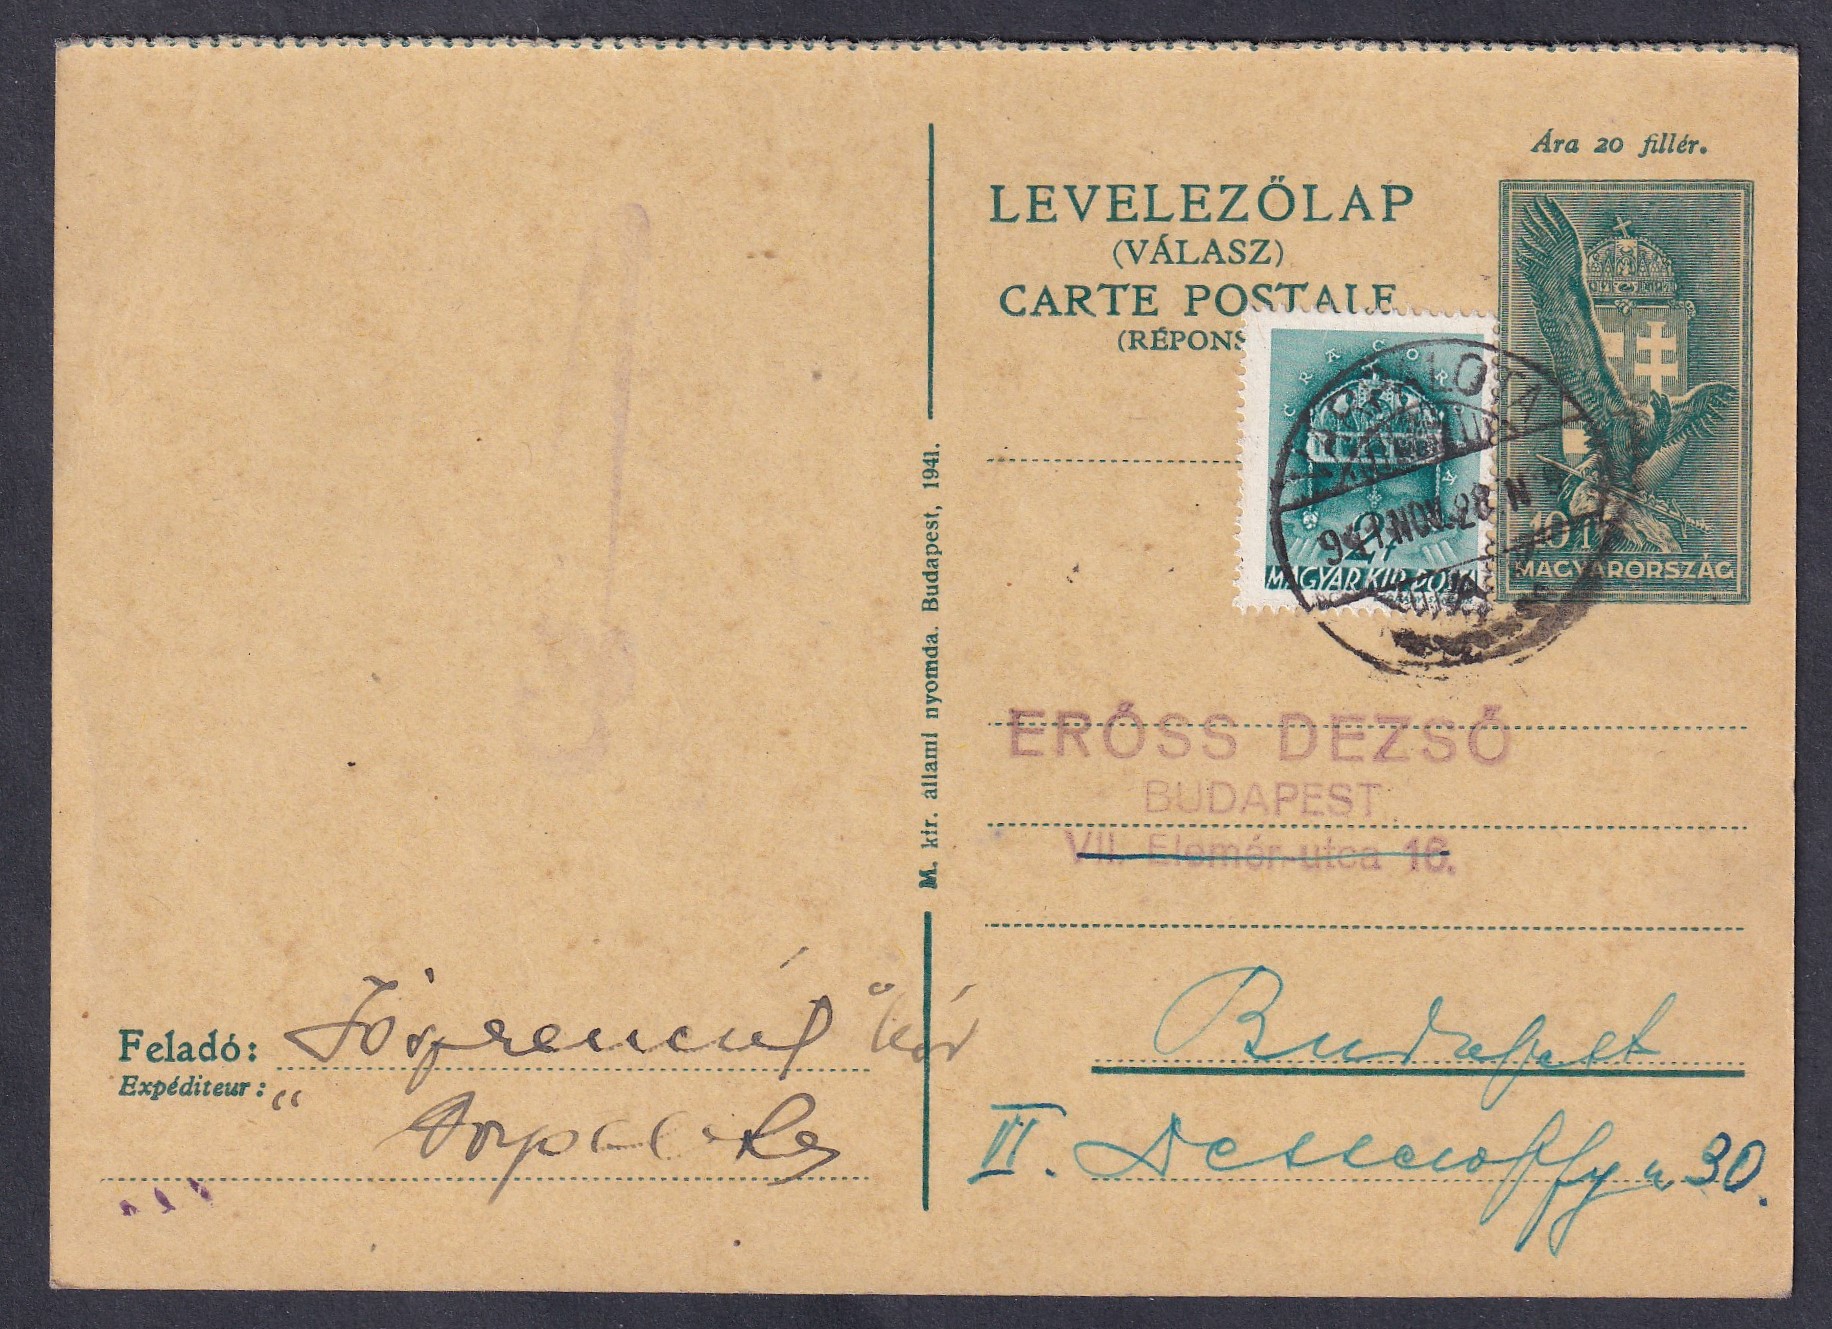 Ára 20 fillér.
LEVELEZŐLAP
(VÁLASZ)
CARTE POSTALE
(RÉPONS
MAGYAR KIR. POSTA
2f
10 f
MAGYARORSZÁG
941 NOV. 28. N
M. kir. állami nyomda. Budapest, 1941.
ERŐSS DEZSŐ
BUDAPEST
VII. Elemér-utca 16.
Feladó:
Expéditeur:
Budapest
VI. Dessewffy u 30.